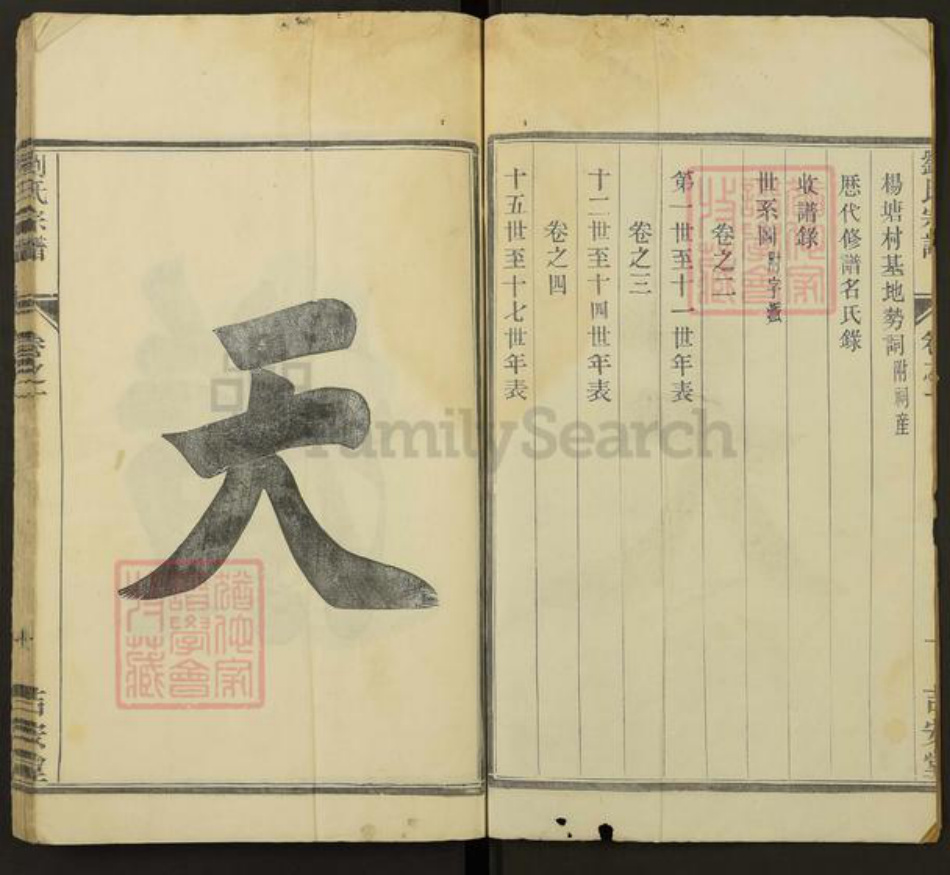 劉氏宗譜
卷之一
楊塘村基地勢詞附祠産
歷代修譜名氏錄
收譜錄
世系圖附字蕋
卷之二
第一世至十一世年表
卷之三
十二世至十四世年表
卷之四
十五世至十七世年表
天
劉氏宗譜
卷之一
FamilySearch
譜學會